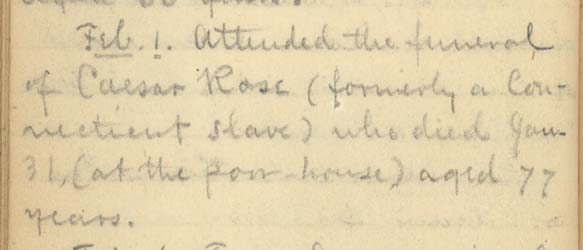 Feb. 1. Attended the funeral
of Caesar Rose (formerly a Con-
necticut slave) who died Jan.
31, (at the poor-house,) aged 77
years.